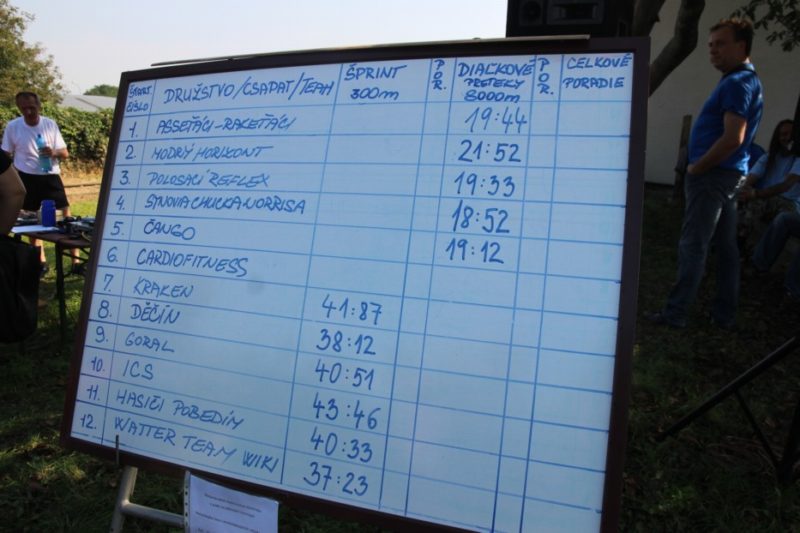 ŠTART. ČÍSLO DRUŽSTVO/CSAPAT/TEAM ŠPRINT 300m POR. DIAĽKOVÉ PRETEKY 8000m POR. CELKOVÉ PORADIE
1. ASSEŤÁCI-RAKEŤÁCI 19:44
2. MODRÝ HORIZONT 21:52
3. POLOSACÍ REFLEX 19:33
4. SYNOVIA CHUCKA NORRISA 18:52
5. ČANGO 19:12
6. CARDIOFITNESS
7. KRAKEN 41:87
8. DĚČÍN 38:12
9. GORAL 40:51
10. ICS 43:46
11. HASIČI POBEDIM 40:33
12. WATTER TEAM WIKI 37:23